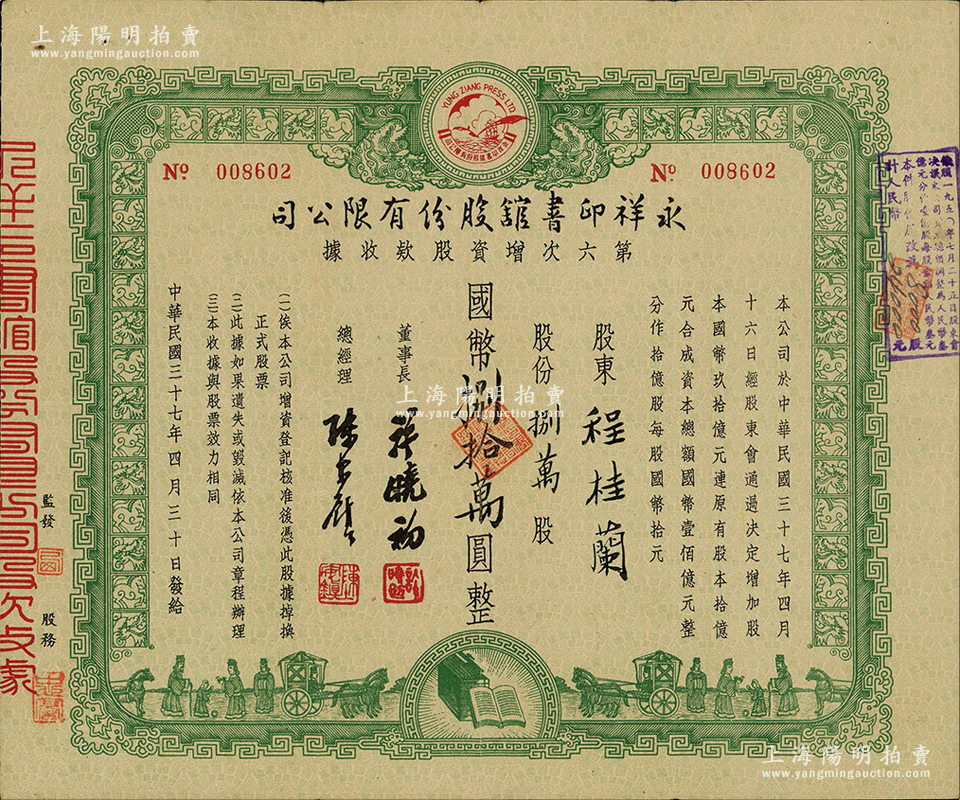 上海陽明拍賣
www.yangmingauction.com
上海陽明拍賣
www.yangmingauction.com
YUNG ZIANG PRESS LTD
永祥印書館股份有限公司
No 008602
No 008602
永祥印書館股份有限公司
第六次增資股款收據
本公司於中華民國三十七年四月
十六日經股東會通過決定增加股
本國幣玖拾億元連原有股本拾億
元合成資本總額國幣壹佰億元整
分作拾億股每股國幣拾元
股東 程桂蘭
股份 捌萬 股
國幣捌拾萬圓整
董事長
總經理
㈠俟本公司增資登記核准後憑此股據掉換
正式股票
㈡此據如果遺失或毀滅依本公司章程辦理
㈢本收據與股票效力相同
中華民國三十七年四月三十日發給
監發
股務
上海陽明拍賣
www.yangmingauction.com
上海陽明拍賣
www.yangmingauction.com